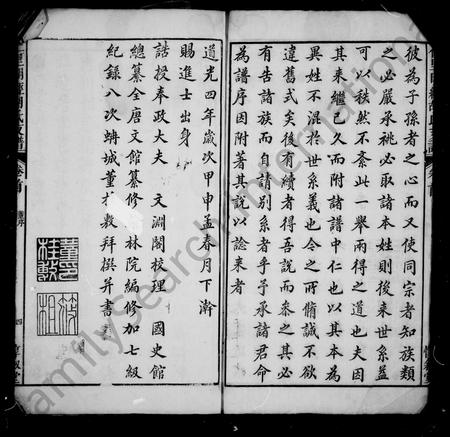 彼為子孫者之心而又使同宗者知族類
之必嚴承祧必取諸本姓則後來世系益
可以秩然不紊此一舉兩得之道也夫因
其來繼已久而附諸譜中仁也以其本為
異姓不混於世系義也今之所脩誠不欲
違舊式矣後有續者得吾說而叅之其必
有告諸族而自請別系者乎子承諸君命
為譜序因附著其說以諗來者
道光四年歲次甲申孟春月下澣
賜進士出身
誥授奉政大夫 文淵閣校理 國史館
總纂全唐文館纂修 翰林院編修加七級
紀錄八次蚺城董桂敷拜撰并書
卷首
四
FamilySearch International